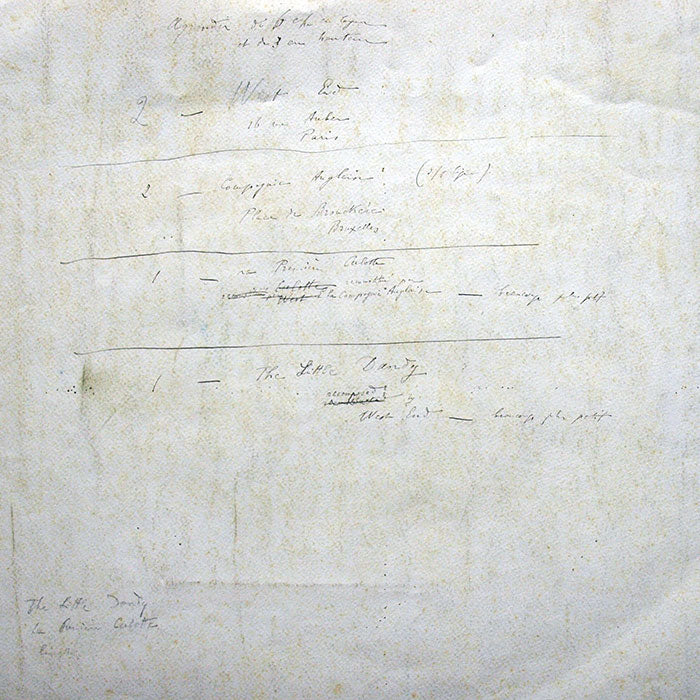 Agrandir de 6 c/m en
et de 3 en hauteur
2 — West End
16 rue Auber
Paris
2 — Compagnie Anglaise
Place de Brouckère
Bruxelles
1 — La Première Culotte
Culotte recomposé par
West la Compagnie Anglaise — beaucoup plus petit
1 — The Little Dandy
recomposed
by
West End — beaucoup plus petit
The Little Dandy
La Première Culotte